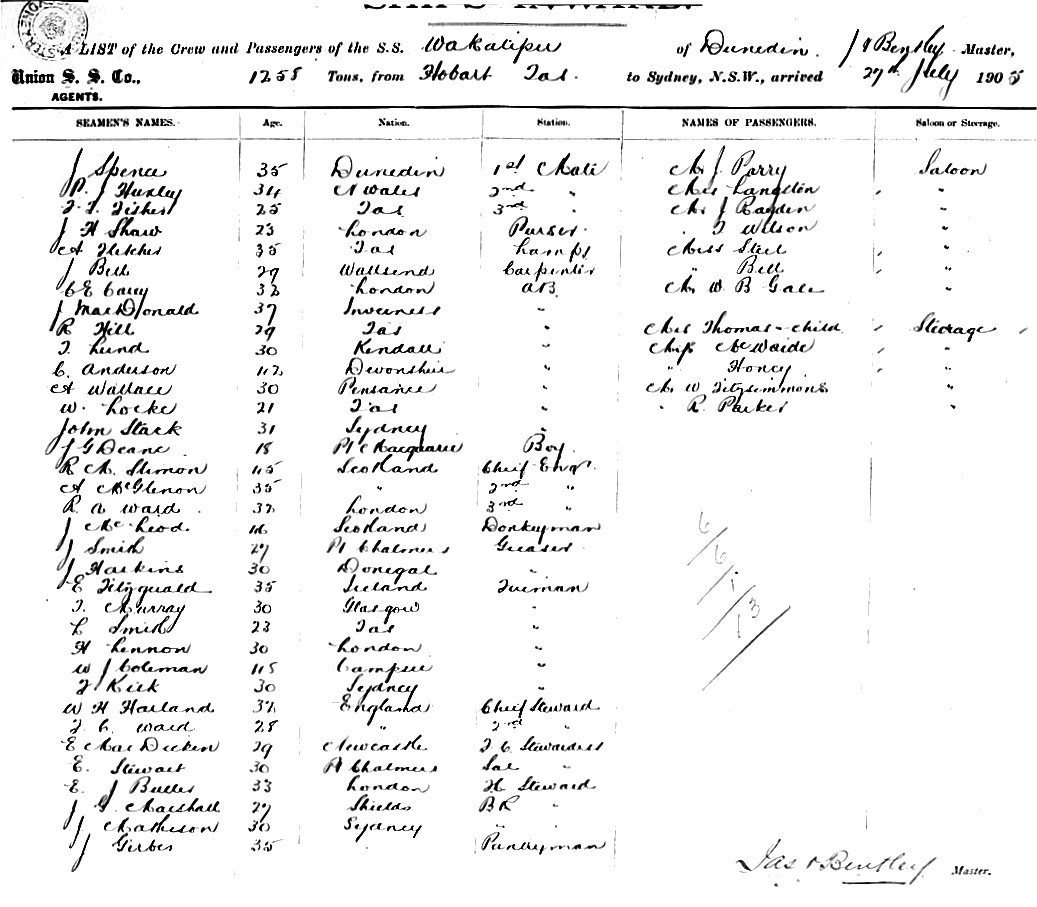 A LIST of the Crew and Passengers of the S.S. Wakatipu of Dunedin. J Bentley Master,
Union S. S. Co., 1258 Tons, from Hobart Tas. to Sydney, N.S.W., arrived 27th July 1905
AGENTS.
SEAMEN'S NAMES. Age. Nation. Station. NAMES OF PASSENGERS. Saloon or Steerage.
J Spence 35 Dunedin 1st Mate Mr J. Parry Saloon
P. J Huxley 34 N Wales 2nd " Mrs Langston "
F. T. Fisher 25 Tas 3rd " Mr J Bayden "
J H Shaw 23 London Purser " T Wilson "
A Fletcher 35 Tas Lamps Miss Steel "
J Bell 29 Wallsend Carpenter " Bell "
C E Carey 32 London AB Mr W B Gale "
J MacDonald 37 Inverness "
R Hill 29 Tas " Mrs Thomas - child Steerage
T. Lund 30 Kendall " Miss McWaide "
C. Anderson 42 Devonshire " " Honey "
A Wallace 30 Pensance " Mr W Fitzsimmons "
W. Locke 21 Tas " " R. Parker "
John Stack 31 Sydney "
J G Deane 18 Pt Macquarie Boy
R M. Simon 45 Scotland Chief Engr.
A McGlenon 35 " 2nd "
R. A Ward 32 London 3rd "
J McLeod 46 Scotland Donkeyman
J Smith 27 Pt Chalmers Greaser
J Harkins 30 Donegal "
E Fitzgerald 35 Ireland Fireman
T. Murray 30 Glasgow "
L Smith 23 Tas "
H Lennon 30 London "
W J Coleman 45 Campsie "
F Kirk 30 Sydney "
W H Harland 32 England Chief Steward
F. C. Ward 28 " 2nd "
E MacDicken 29 Newcastle F C Stewardess
E. Stewart 30 Pt Chalmers Sal "
E. J Butler 33 London F C Steward
J G. Marshall 27 Shields B R "
J Matheson 30 Sydney " "
J Girbes 35 Pantryman
6/6/1/13
Jas Bentley Master.